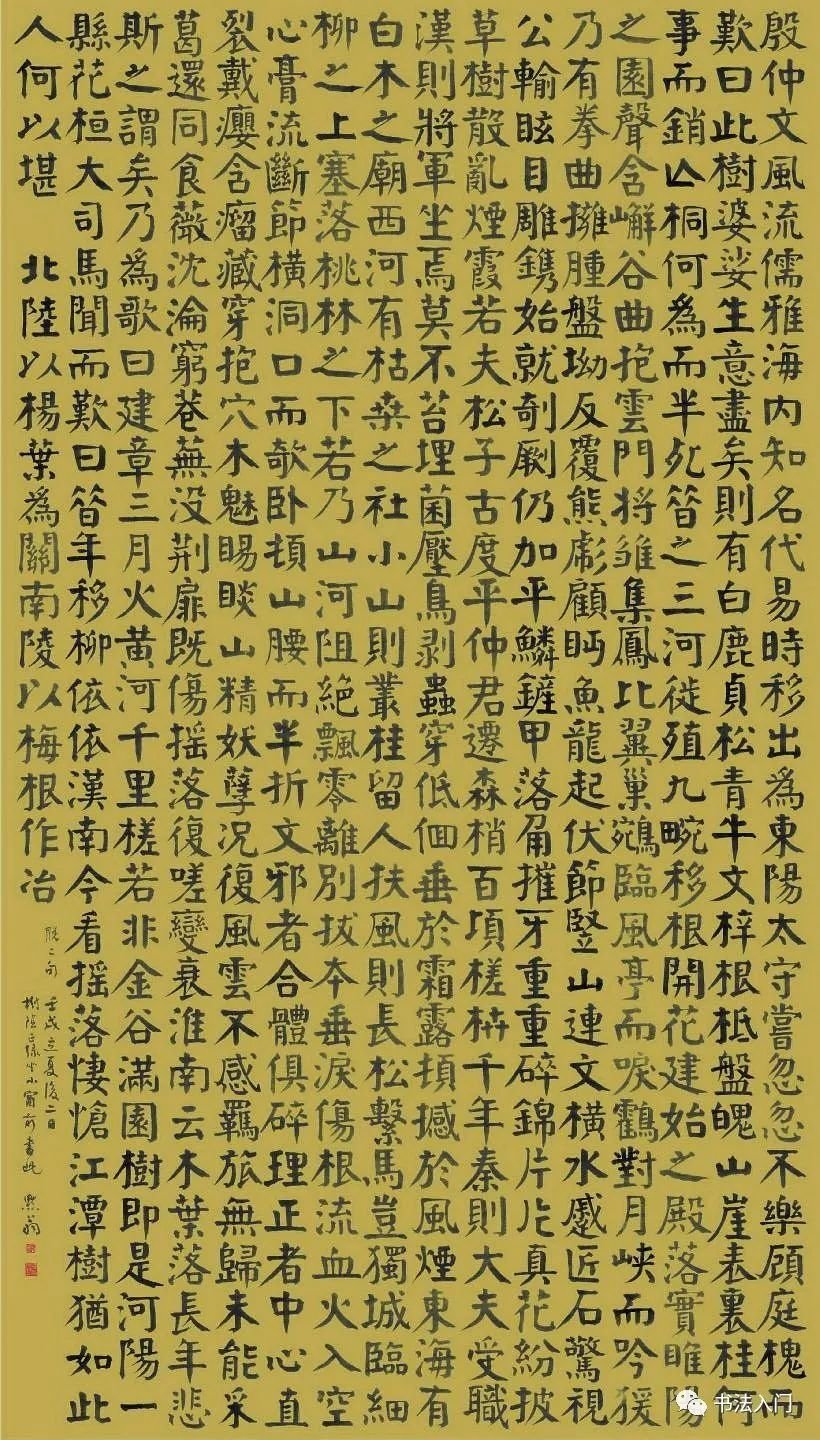 殷仲文風流儒雅海内知名代易時移出為東陽太守嘗忽忽不樂顧庭槐而
歎曰此樹婆娑生意盡矣則有白鹿貞松青牛文梓根柢盤魄山崖表裏桂何
事而銷亡桐何為而半死昝之三河徙殖九畹移根開花建始之殿落實睢陽
之園聲含嶰谷曲抱雲門将雏集鳳比翼巢鵷臨風亭而唳鶴對月峡而吟猨
乃有拳曲擁腫盤坳反覆熊彪顧眄魚龍起伏節竪山連文横水蹙匠石驚視
公輸眩目雕鎸始就剞劂仍加平鱗鏟甲落角摧牙重重碎錦片片真花紛披
草樹散亂煙霞若夫松子古度平仲君遷森梢百頃槎枿千年秦則大夫受職
漢則將軍坐焉莫不苔埋菌壓鳥剥蟲穿低佪垂於霜露頓撼於風煙東海有
白木之廟西河有枯桑之社小山則叢桂留人扶風則長松繫馬豈獨城臨細
柳之上塞落桃林之下若乃山河阻絶飄零離別拔本垂淚傷根流血火入空
心膏流斷節横洞口而欹卧頓山腰而半折文邪者合體俱碎理正者中心直
裂戴癭含瘤藏穿抱穴木魅睗睒山精妖孽况復風雲不感羈旅無歸未能采
葛還同食薇沈淪窮巷蕪没荆扉既傷摇落復嗟變衰淮南云木葉落長年悲
斯之謂矣乃為歌曰建章三月火黄河千里槎若非金谷滿園樹即是河陽一
縣花桓大司馬聞而歎曰昝年移柳依依漢南今看摇落悽愴江潭樹猶如此
人何以堪 北陸以楊葉為關南陵以梅根作冶
脱二句
壬戌立夏後二日
小窗前書此 默翁
书法入门